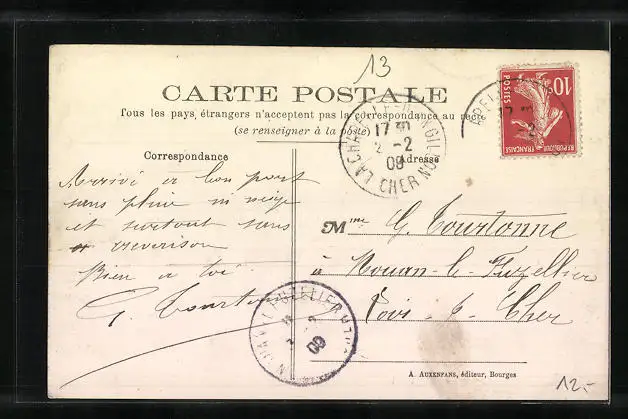 13
CARTE POSTALE
Tous les pays, étrangers n'acceptent pas la correspondance au recto
(se renseigner à la poste)
10c
POSTES
REPUBLIQUE FRANÇAISE
17 30
2 -2
09
CHER
Correspondance
Adresse
Arrivé à bon port
sans pluie ni neige
et surtout sans
Bien à toi
G. Tourtonne
Mme G. Tourtonne
à Nouan-le-Fuzellier
Loir-&-Cher
09
A. AUXENFANS, éditeur, Bourges
12.-